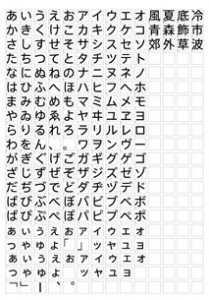 あいうえおアイウエオ風夏底冷
かきくけこカキクケコ青森飾市
さしすせそサシスセソ郊外草波
たちつてとタチツテト
なにぬねのナニヌネノ
はひふへほハヒフヘホ
まみむめもマミムメモ
やゐゆゑよヤヰユヱヨ
らりるれろラリルレロ
わをん、。ワヲンヴー
がぎぐげごガギグゲゴ
ざじずぜぞザジズゼゾ
だぢづでどダヂヅデド
ばびぶべぼバビブベボ
ぱぴぷぺぽパピプペポ
ぁぃぅぇぉァィゥェォ